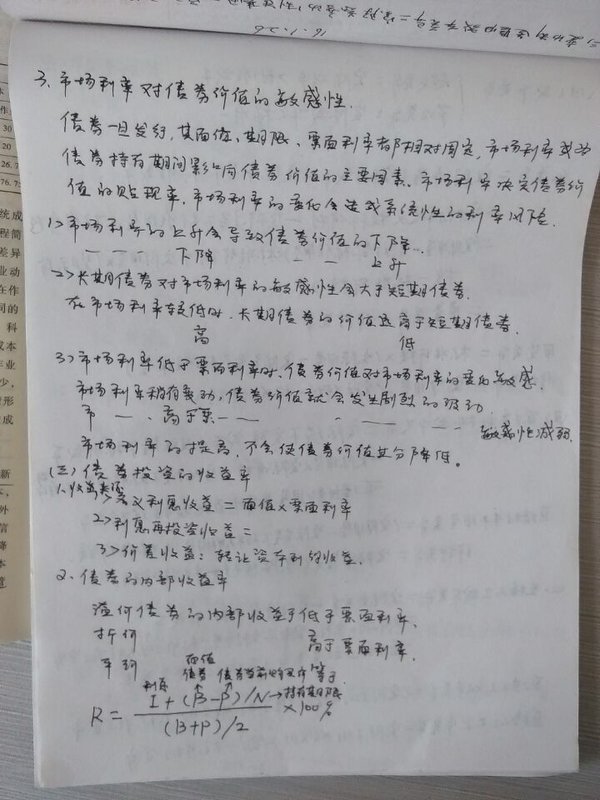 16.1.26
3、市场利率对债券价值的敏感性.
债券一旦发行,其面值、期限、票面利率都相对固定,市场利率成为
债券持有期间影响债券价值的主要因素、市场利率决定债券价
值的贴现率,市场利率的变化会造成系统性的利率风险.
1>市场利率的上升会导致债券价值的下降...
— — 下降 — 上升
2>长期债券对市场利率的敏感性会大于短期债券.
在市场利率较低时,长期债券的价值远高于短期债券.
高 低
3>市场利率低于票面利率时,债券价值对市场利率的变化敏感.
市场利率稍有变动,债券价值就会发生剧烈的波动
市 — — 高于票 — — 敏感性减弱.
市场利率的提高,不会使债券价值过分降低。
(三)债券投资的收益率
1、收益来源 1>名义利息收益=面值×票面利率
2>利息再投资收益=
3>价差收益:转让资本利得收益.
2、债券的内部收益率
溢价债券的内部收益率低于票面利率.
折价 高于票面利率.
平价 等于
利息 面值 债券 债券当前 持有期限
R= I+(B-P)/N / (B+P)/2 ×100%
成本
科